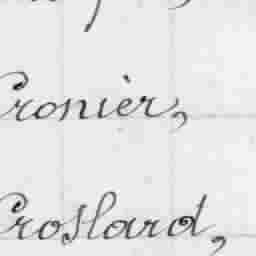 Cronièr,
Croslard,